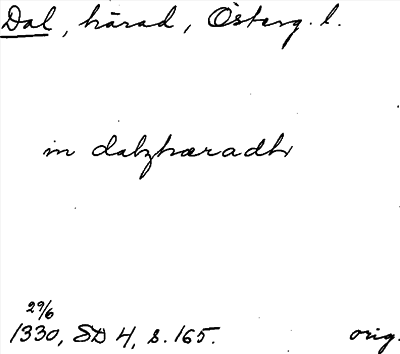 Dal, härad, Österg. l.
in dalzhæradh
29/6
1330, SD 4, s. 165. orig.